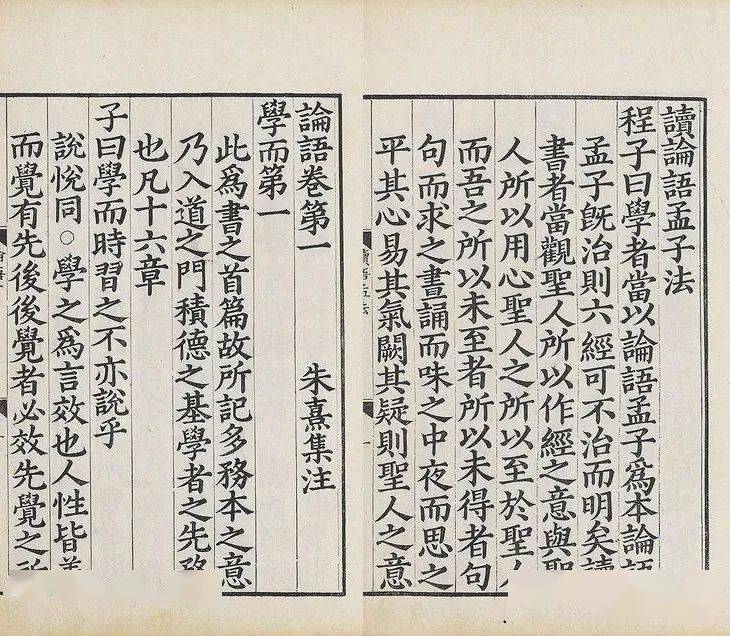 讀論語孟子法
程子曰學者當以論語孟子爲本論語
孟子旣治則六經可不治而明矣讀
書者當觀聖人所以作經之意與聖
人所以用心聖人之所以至於聖人
而吾之所以未至者所以未得者句
句而求之晝誦而味之中夜而思之
平其心易其氣闕其疑則聖人之意
論語卷第一 朱熹集注
學而第一
此爲書之首篇故所記多務本之意
乃入道之門積德之基學者之先務
也凡十六章
子曰學而時習之不亦說乎
說悅同○學之爲言效也人性皆善
而覺有先後後覺者必效先覺之所